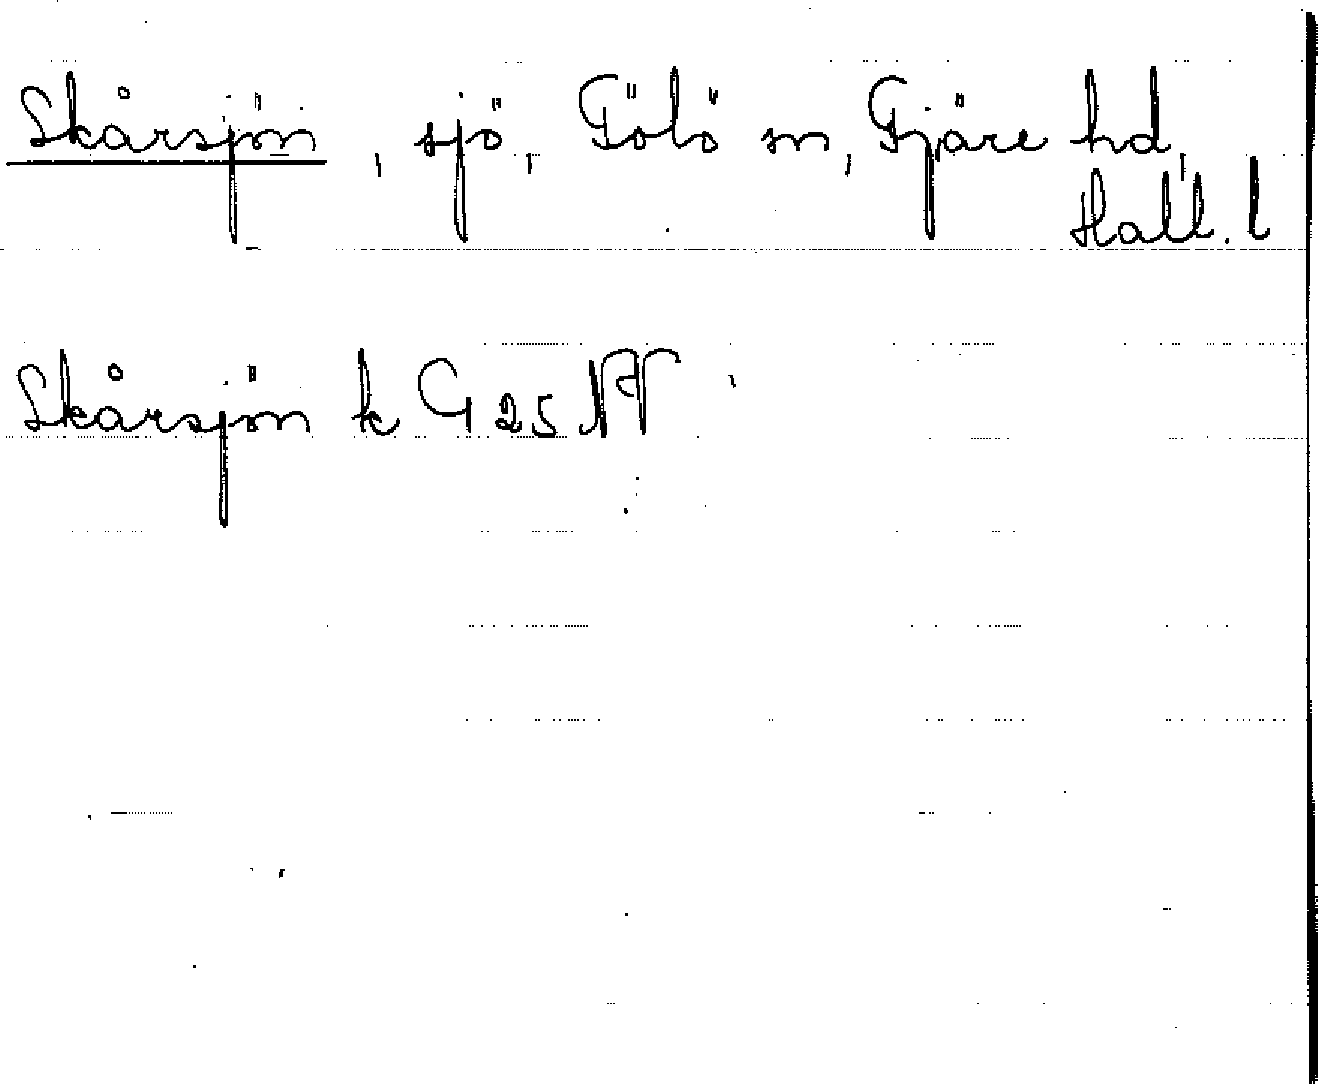 Skårsjön, sjö, Fölö sn, Fjäre hd,
Hall. l
Skårsjön k G 25 NV